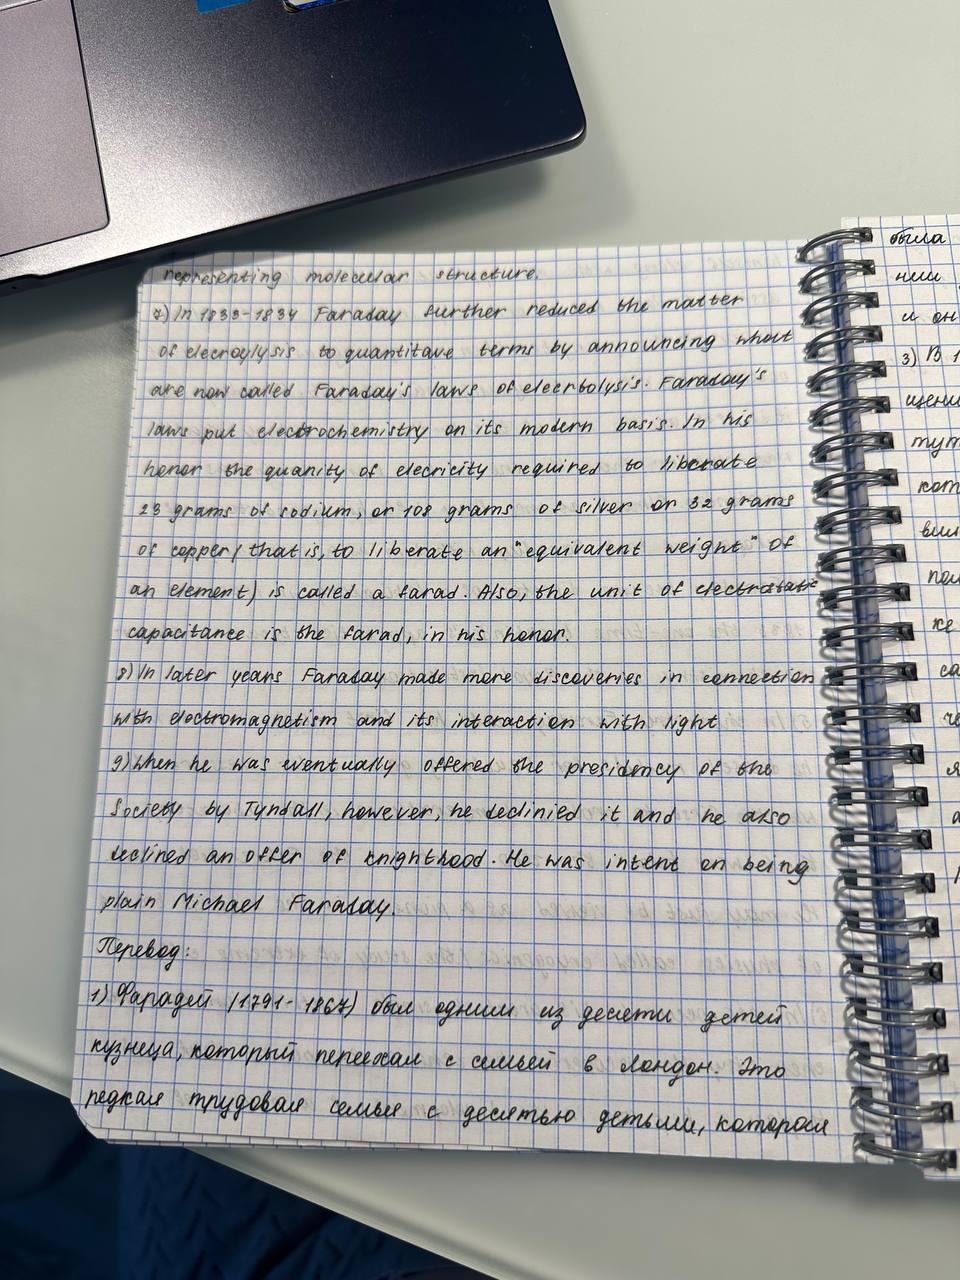 representing molecular structure.
7) In 1833-1834 Faraday further reduced the matter
of elecroylysis to quantitave terms by announcing what
are now called Faraday's laws of elecrbolysis. Faraday's
laws put electrochemistry on its modern basis. In his
honor the quanity of elecricity required to liberate
23 grams of sodium, or 108 grams of silver or 32 grams
of copper (that is, to liberate an "equivalent weight" of
an element) is called a farad. Also, the unit of electrostatic
capacitance is the farad, in his honor.
8) In later years Faraday made more discoveries in connection
with electromagnetism and its interaction with light
9) When he was eventually offered the presidency of the
Society by Tyndall, however, he declinied it and he also
declined an offer of knighthood. He was intent on being
plain Michael Faraday.
Перевод:
1) Фарадей (1791-1867) был одним из десяти детей
кузнеца, который переехал с семьей в Лондон. Это
редкая трудовая семья с десятью детьми, которая
была
нии
и он
3) В 1
щени
тут
кот
вил
пол
же
са
че
я
а